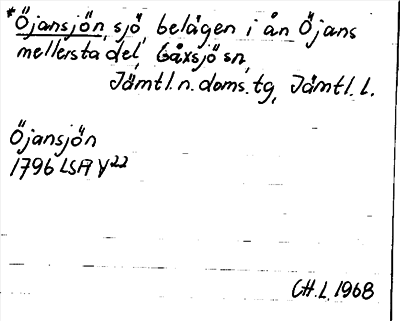 *Öjansjön, sjö, belägen i ån Öjans
mellersta del, Gåxsjö sn,
Jämtl. n. doms. tg, Jämtl. l.
Öjansjön
1796 LSA Y22
CH.L. 1968